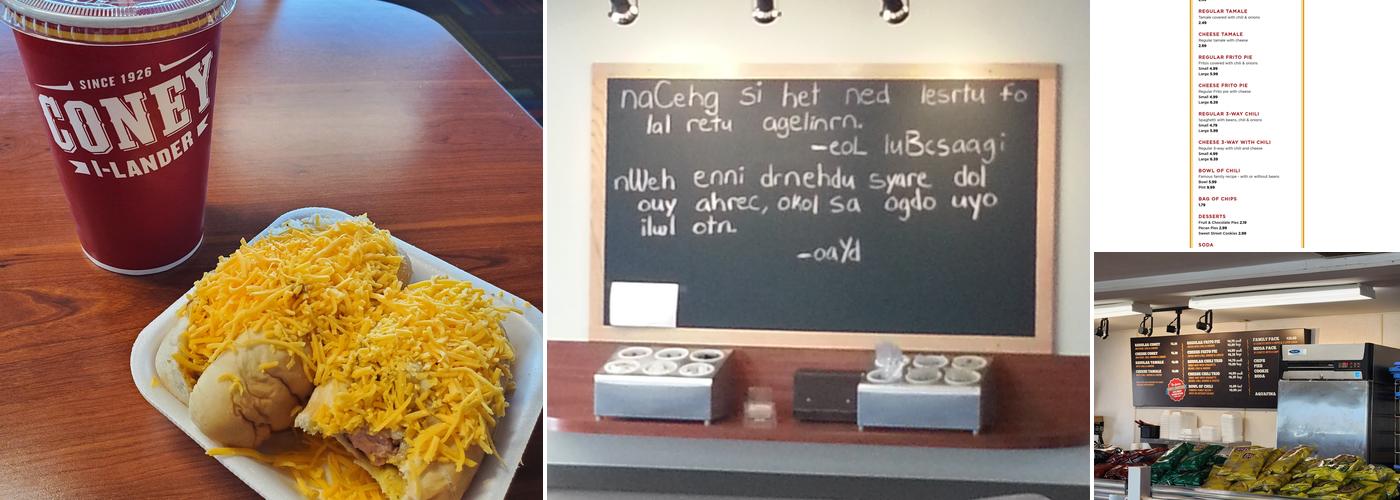 SINCE 1926
CONEY
I-LANDER
naCehg si het ned lesrtu fo
lal retu agelinrn.
-eoL luBcsaagi
nWeh enni drnehdu syare dol
ouy ahrec, okol sa ogdo uyo
ilwl otn.
-oaYd
REGULAR TAMALE
Tamale covered with chili & onions
2.49
CHEESE TAMALE
Regular tamale with cheese
2.69
REGULAR FRITO PIE
Fritos covered with chili & onions
Small 4.99
Large 5.99
CHEESE FRITO PIE
Regular Frito pie with cheese
Small 4.99
Large 6.29
REGULAR 3-WAY CHILI
Spaghetti with beans, chili & onions
Small 4.79
Large 5.99
CHEESE 3-WAY WITH CHILI
Regular 3-way with chili and cheese
Small 4.99
Large 6.39
BOWL OF CHILI
Famous family recipe - with or without beans
Bowl 5.99
Pint 9.99
BAG OF CHIPS
1.79
DESSERTS
Fruit & Chocolate Pies 2.19
Pecan Pies 2.99
Sweet Street Cookies 2.99
SODA
REGULAR CONEY
CHEESE CONEY
REGULAR TAMALE
CHEESE TAMALE
REGULAR FRITO PIE
CHEESE FRITO PIE
REGULAR CHILI TRIO
CHEESE CHILI TRIO
BOWL OF CHILI
FAMILY PACK
MEGA PACK
CHIPS
PIES
COOKIE
SODA
AQUAFINA